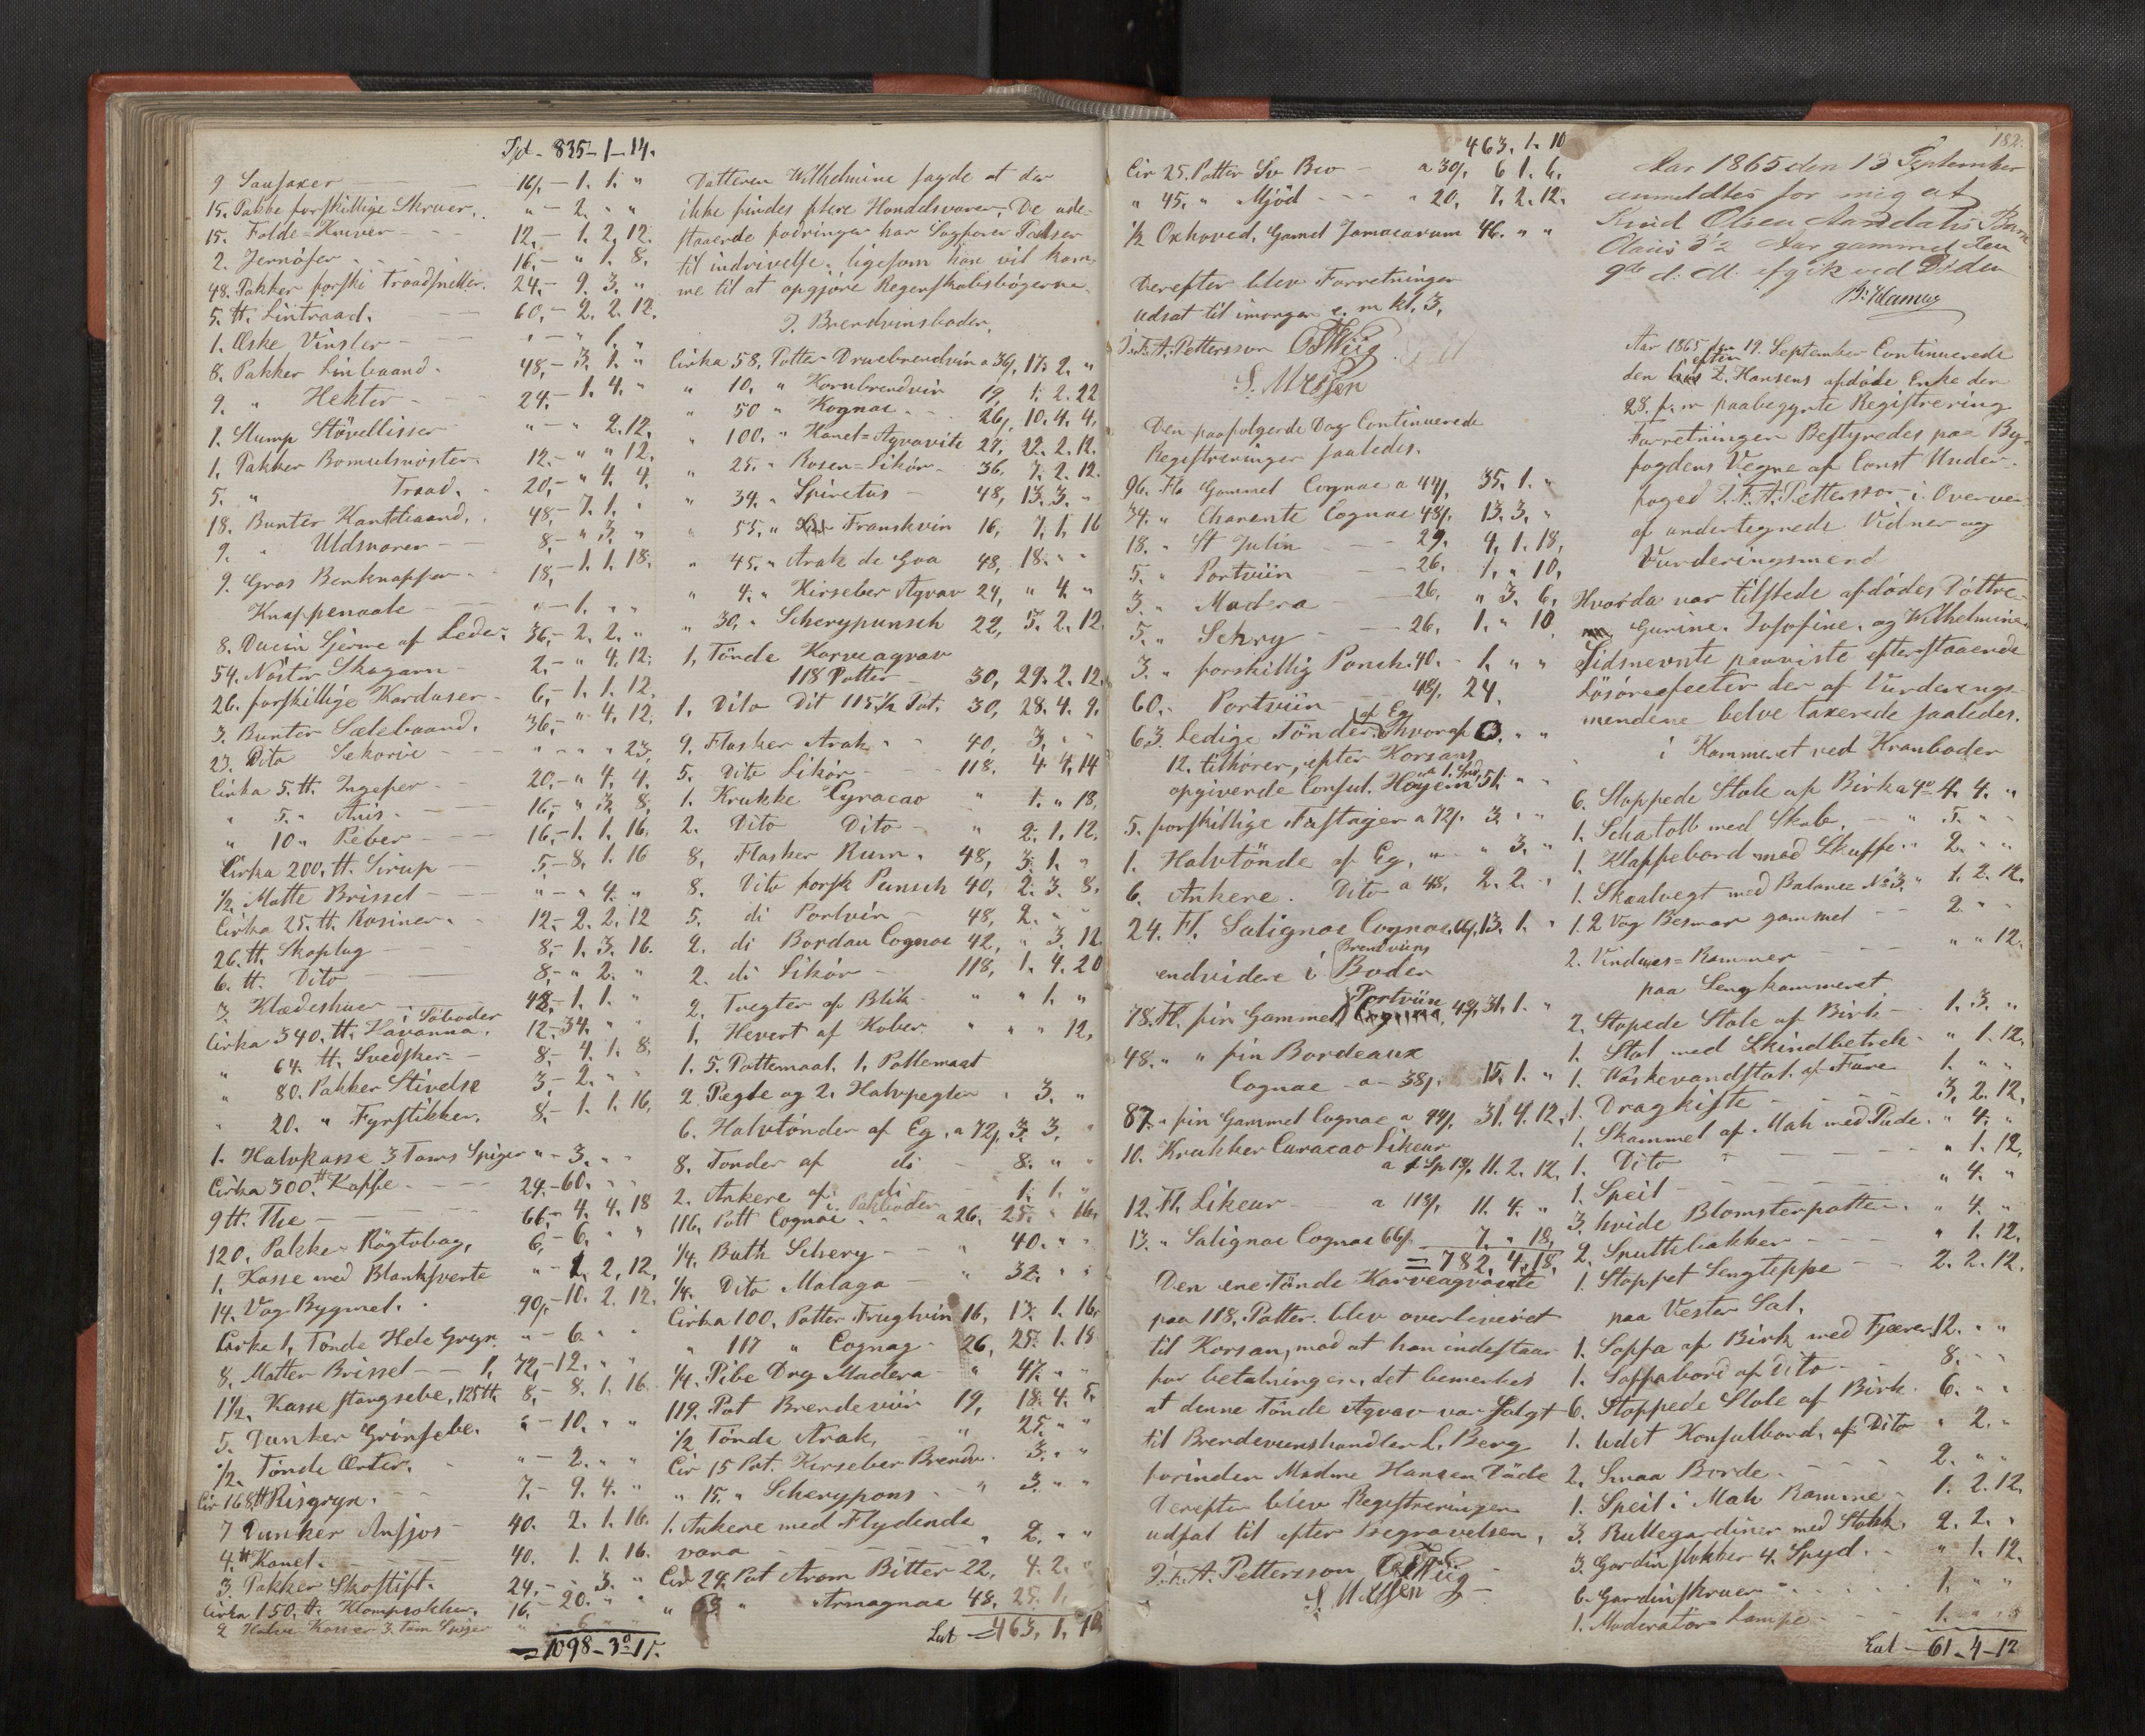 Tpt - 835-1-14.
9 Saufaxer 16/, - 1. 1. "
15. Pakke forskillige Skruer. " - 2. " "
15. Folde=Kniver 12, - 1. 2. 12.
2. Jernöser 16, - " 1. 8.
48. Pakker forski Traadsneller. 24, - 9. 3. "
5. tt. Lintraad. 60, - 2. 2. 12.
1. Æske Vinsler " - " 1. "
8. Pakker Linbaand. 48, - 3. 1. "
9. " Hekter 24, - 1. 4. "
1. Stump Stövellisser " - " 2. 12.
1. Pakker Bomulsnöster 12. - " " 12.
5. " Traad. 20, - " 4. 4.
18. Bunter Kantebaand. 48, - 7. 1. "
9. " Uldsnorer 8, - " 3. "
9. Gros Benknapper 18, - 1. 1. 18.
Knappenaale " - 1. " "
8. Dusin Gjerme af Leder 36, - 2. 2. "
54. Nöster Skagarn 2. - " 4. 12.
26. forskillige Karduser 6, - 1. 1. 12.
3. Bunter Sælebaand. 36, - " 4. 12.
23. Dito Sekorie " " " 23.
Cirka 5. tt. Ingefer 20, - " 4. 4.
" 5. " Anis 16, - " 3. 8.
" 10 " Peber 16, - 1. 1. 16.
Cirka 200. tt. Sirup 5, - 8. 1. 16
1/2. Matte Brissel " - " 4. "
Cirka 25. tt. Rosiner. 12, - 2. 2. 12
26. tt. Skoplug 8, - 1. 3. 16.
6. tt. Dito 8, - " 2. "
3. Klædeshuer 48, - 1. 1. "
i Söboder
Cirka 340. tt. Havanna. 12, - 34. " "
" 64. tt. Svedsker 8, - 4. 1. 8.
" 80. Pakker Stivelse 3, - 2. " "
" 20. " Fyrstikker. 8, - 1. 1. 16.
1. Halvkasse 3 Toms Spiger " - 3. " "
Cirka 300. tt Kaffe 24, - 60. " "
9 tt. The 66, - 4. 4. 18
120. Pakker Rögtobag. 6, - 6. " "
1. Kasse med Blanksverte " - 1. 2. 12.
14. Vog Bygmel. 90/, - 10. 2. 12.
Cirka 1, Tönde Hele Gryn. " - 6. " "
8. Matter Brissel 1, 72, - 12. " "
1 1/2. Kasse stangsebe, 125 tt. 8, - 8. 1. 16
5. Dunker Grönsebe. " - 10. " "
1/2. Tönde Erter. " - 2. " "
Cir 168 tt Risgryn. 7, - 9. 4. "
7 Dunker Ansjos 40. 2. 1. 16.
4. tt Kanel. 40. 1. 1. 16.
3. Pakker Skostift. 24, - " 3. "
Cirka 150. tt. Klompsokker. 16, - 20. " "
2 Halve Kasser 3. Tom Spiger " 6 " "
= 1098-3-15.
Datteren Wilhelmine sagde at der
ikke findes flere Handelsvarer, De ude-
staaende fordringer har Sagförer Paulsen
til indrivelse, ligesom han vil kom-
me til at opgjöre Regnskabsbögerne.
I. Brendvinsboder.
Cirka 58. Potter Druebrendvin a 36/, 17. 2. "
" 10. " Kornbrendvin 19, 1. 2. 22
" 50 " Kognac 26/, 10. 4. 4.
" 100. " Kanel=Aqvavite 27, 22. 2. 12.
" 25. " Rosen=Likör 36, 7. 2. 12.
" 34. " Spiretus 48, 13. 3. "
" 55. " Franskvin 16, 7. 1. 16
" 45. " Arak de Goa 48, 18. " "
" 4. " Kirseber Aqvav 24, " 4. "
" 30. " Scherypunsch 22, 5. 2. 12.
1, Tönde Karveaqvav
118 Potter 30, 29. 2. 12.
1. Dito Dit 115 1/2 Pot. 30, 28. 4. 9.
9. Flasker Arak 40, 3. " "
5. Dito Likör 118. 4. 4. 14
1. Krukke Cyracao " 1. " 18.
2. Dito Dito " 2. 1. 12.
8. Flasker Rum. 48, 3. 1. "
8. Dito forsk Punsch 40, 2. 3. 8.
5. di Portvin 48, 2. " "
2. di Bordau Cognac 42, " 3. 12.
2. di Likör 118, 1. 4. 20
2. Tregter af Blik " " 1. "
1, Hevert af Kober. " " " 12.
1. 5. Pottemaal. 1. Pottemaal
2. Pegle og 2. Halvpegler " 3. "
6. Halvtönder af Eg. a 72/, 3. 3. "
8. Tonder af di 8. " "
2. Ankere af di 1. 1. "
i Pakboder
116. Pott Cognac a 26, 25. " 16.
1/4. Bath Schery " 40. " "
1/4. Dito Malaga " 32. " "
Cirka 100. Potter Frugtvin 16, 13. 1. 16.
" 117 " Cognag 26, 25. 1. 18
1/4. Pibe Dry Madera " 47. " "
119. Pot Brendeviin 19, 18. 4. 5.
1/2 Tönde Arak, " 25. " "
Cir 15 Pot. Kirseber Brendv. 3. " "
" 15. " Scherypons " 3. " "
1. Ankere med Flydende
vara " 2. " "
Cir 24. Pot Arom Bitter 22, 4. 2. "
" 63. " Armagnac 48, 25. 1.
Lat = 463. 1. 10
182.
463. 1. 10
Cir 25. Potter Sv Bro a 30/, 6 1. 6.
" 45. " Mjöd " 20, 7. 2. 12.
1/2 Oxhoved. Gamel Jamacarum 46. " "
Derefter blev Forretningen
udsat til imorgen e. m kl. 3,
J. F. A. Pettersson
Den paafolgende Dag Continuerede
Registreringer saaledes.
96. Fl Gammel Cognac a 44/, 35. 1. "
34. " Charente Cognac 48/, 13. 3. "
18. " St Julin 29, 4. 1. 18.
5. " Portviin 26, 1. " 10.
3. " Madera 26, " 3. 6.
5. " Schry 26, 1. " 10
3. " forskillig Ponch. 40. 1. " "
60. " Portviin 48/, 24.
63. Ledige Tönder af Eg hvoraf
12. tilhörer, efter Korsans
opgivende Consul. Höyem a 1. Spd, 51. " "
5. forskillige Fustager a 72/. 3. " "
1. Halvtönde af Eg. " " 3. "
6. Ankere. Dito a 48, 2. 2. "
24. Fl. Salignac Cognac 66/, 13. 1. "
endvidere i Brendviins Boder
78. Fl. fin Gammel Portviin 48/, 31. 1. "
48. " " fin Bordeaux
Cognac a 38/. 15. 1. "
87. " fin Gammel Cognac a 44/, 31. 4. 12.
10. Krukker Curacao Likeur
a 1 Sp 18/, 11. 2. 12.
12. Fl. Likeur a 118/, 11. 4. "
13. " Salignac Cognac 66/. 7. " 18.
= 782. 4. 18.
Den ene Tönde Karveaqvavite
paa 118. Potter. blev overleveret
til Korsan, mod at han indestaar
for betalningen, det bemerkes
at denne Tönde Aqvav var Solgt
til Brendevinshandler L. Berg
forinden Madme Hansen Döde
Derefter blev Registreringen
udsat til efter Begravelsen.
J. F. A. Pettersson
Aar 1865 den 13 September
anmeldtes for mig at
Knud Olsen Aandahls Barn
Olaus 3 1/2 Aar gammel den
9de d. M. afgik ved Döden
Aar 1865 den 19. September Continuerede
den efter L. Hansens afdöde Enke den
28. f. m paabegynte Registrering
Forretningen Bestyredes paa By-
fogdens Vegne af Const Under-
foged J. F. A. Pettersson i Overvær
af undertegnede Vidner og
Vurderingsmend
Hvorda var tilstede afdödes Döttre
Gurine. Josofine. og Wilhelmine
Sidsnevnte paaviste efterstaaende
Lösöreefecter der af Vurderings-
mendene belve taxerede saaledes.
i Kammeret ved Kramboden
6. Stoppede Stole af Birk a 4 4. 4. "
1. Schatoll med Skab. " 5. " "
1. Klappebord med Skuffe. 2. " "
1. Skaalvegt med Balance No 3. " 1. 2. 12.
1. 2 Vog Besmer gammel 2. " "
2. Vindues=Rammer " " 12.
paa Sengkammeret
2. Stopede Stole af Birk 1. 3. "
1. Stol med Skindbetrek " 1. 12.
1. Vaskevandstol. af Fure 1. " "
1. Dragkiste 3. 2. 12.
1. Skammel af. Mah med Pude. " 4. "
1. Dito " 1. 12.
1. Speil " 4. "
3 hvide Blomsterpotter. " 4. "
2. Sputtebakker " 1. 12.
1. Stoppet Sengteppe 2. 2. 12.
paa Vester Sal.
1. Soffa af Birk med Fjærer 12. " "
1. Soffabord af Dito 8. " "
6. Stoppede Stole af Birk 6. " "
1. Udet Konsulbord. af Dito " 2. "
2. Smaa Borde. 2. " "
1. Speil i Mah Ramme 1. 2. 12.
3. Rullegardiner med Stokk. 2. 2. "
3. Gardinstokker 4. Spyd. " 1. 12.
6. Gardinskruer 1. " "
1. Moderator Lampe 1. " "
Lat - 61-4-12